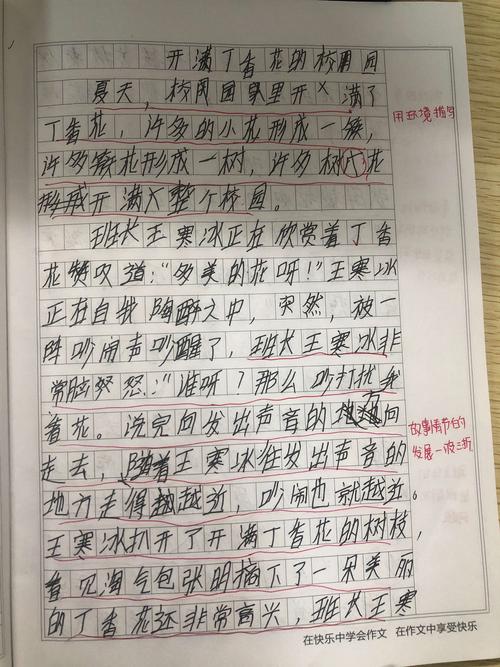 开满丁香花的校园
夏天，校园里开满了
丁香花，许多的小花形成一簇，
用环境描写
许多簇花形成一树，许多树花
形成开满整个校园。
班长王寒冰正在欣赏着丁香
花赞叹道："多美的花呀！"王寒冰
正在自我陶醉之中，突然，被一
阵吵闹声吵醒了，班长王寒冰非
常脑怒怒："谁呀？那么吵打扰我
看花。说完向发出声音的地方向
故事情节的
发展一波三折
走去，随着王寒冰往发出声音的
地方走得越越近，吵闹也就越近。
王寒冰扒开了开满丁香花的树枝，
看见淘气包张明摘下了一朵美丽
的丁香花还非常高兴，班长王寒
在快乐中学会作文 在作文中享受快乐